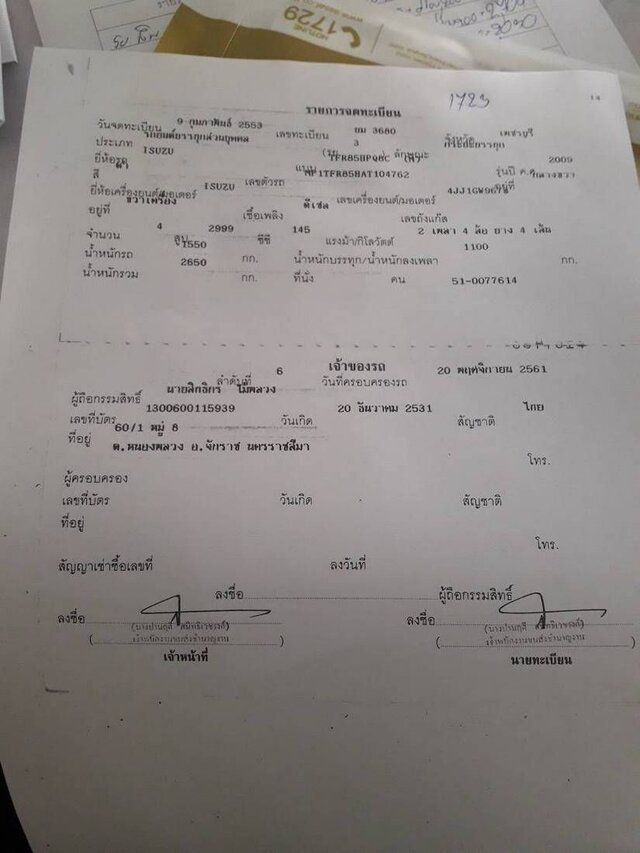 HOTLINE
1729
1723
14
รายการจดทะเบียน
วันจดทะเบียน 9 กุมภาพันธ์ 2553 เลขทะเบียน ยม 3680 เพชรบุรี
ประเภท รถยนต์บรรทุกส่วนบุคคล 3 กระบะบรรทุก
ยี่ห้อรถ ISUZU ลักษณะ 2009
สี แบบ รุ่นปี ค.ศ.
MP1TFR85HAT104762 กลางขวา
ยี่ห้อเครื่องยนต์/มอเตอร์ ISUZU เลขตัวรถ อยู่ที่
อยู่ที่ ขวาเครื่อง เชื้อเพลิง ดีเซล เลขเครื่องยนต์/มอเตอร์
เลขถังแก๊ส
จำนวน 4 สูบ 2999 ซีซี 145 แรงม้า/กิโลวัตต์ 2 เพลา 4 ล้อ ยาง 4 เส้น
น้ำหนักรถ 1550 กก. น้ำหนักบรรทุก/น้ำหนักลงเพลา 1100 กก.
น้ำหนักรวม 2650 กก. ที่นั่ง คน 51-0077614
เจ้าของรถ
ลำดับที่ 6 วันที่ครอบครองรถ 20 พฤศจิกายน 2561
ผู้ถือกรรมสิทธิ์ นายสิทธิกร ไม้พลวง
เลขที่บัตร 1300600115939 วันเกิด 20 ธันวาคม 2531 สัญชาติ ไทย
ที่อยู่ 60/1 หมู่ 8
ต.หนองพลวง อ.จักราช นครราชสีมา
โทร.
ผู้ครอบครอง
เลขที่บัตร วันเกิด สัญชาติ
ที่อยู่
โทร.
สัญญาเช่าซื้อเลขที่ ลงวันที่
ลงชื่อ ผู้ถือกรรมสิทธิ์
ลงชื่อ ลงชื่อ
เจ้าพนักงานขนส่งชำนาญงาน เจ้าพนักงานขนส่งชำนาญงาน
เจ้าหน้าที่ นายทะเบียน